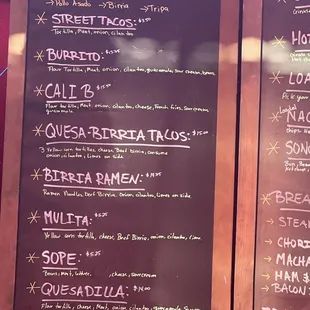 → Pollo Asado → Birria
→ Tripa
* STREET TACOS: $3.50
Tortilla, Meat, onion, cilantro
* BURRITO:
Flour Tortilla, Meat, onion, cilantro, guacamole, sour cream, beans
* CALI B: $15.00
Flour tortilla, Meat, onion, cilantro, cheese, French fries, sour cream
guacamole
* QUESA-BIRRIA TACOS: $15.00
3 Yellow corn tortillas, cheese, Beef Birria, consume
onion, cilantro, limes on side
* BIRRIA RAMEN:
Ramen Noodles, Beef Birria, onion, cilantro, limes on side
* MULITA:
Yellow corn tortilla, cheese, Beef Birria, onion, cilantro, lime
* SOPE:
Beans, meat, cheese, sour cream
* QUESADILLA:
Flour tortilla, cheese, Meat, onion, cilantro, guacamole
HO
LOA
Loaded
NAC
SON
BREA
→ STEA
→ CHORI
→ MACHA
→ HAM &
→ BACON